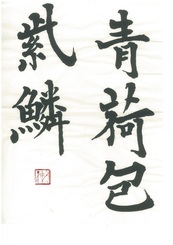 青荷包
紫鱗